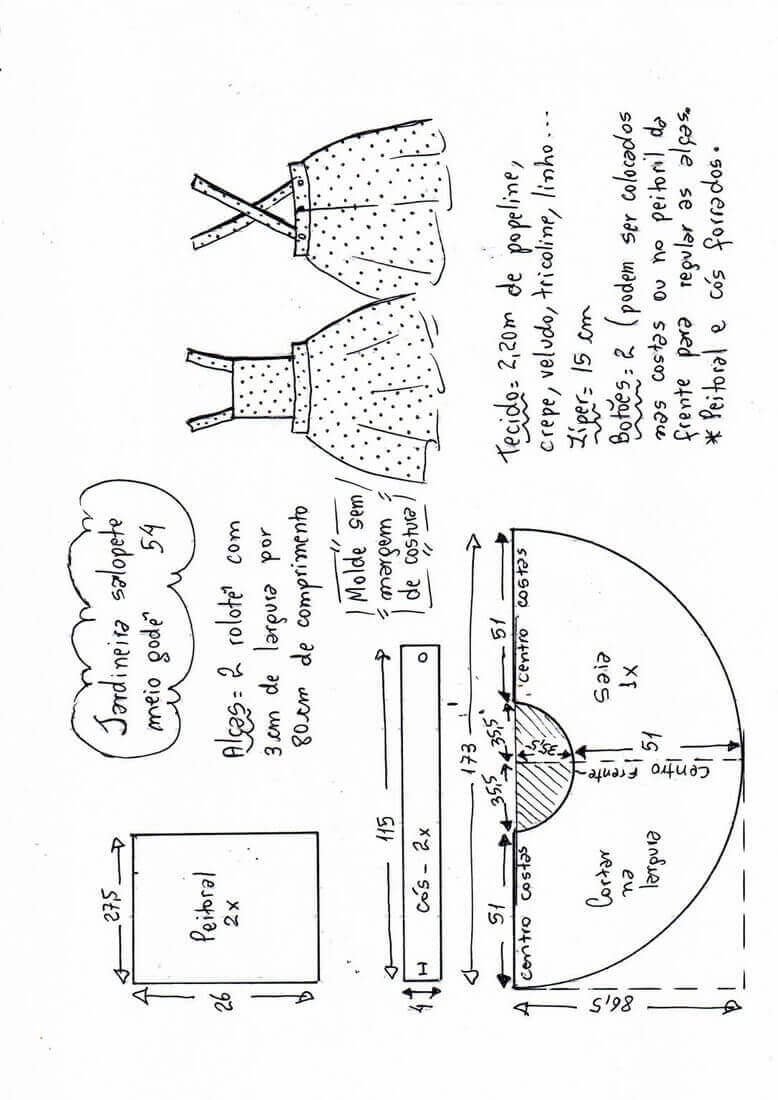 Jardineira salopete
meio godê 54
Alças = 2 rolotê com
3 cm de largura por
80 cm de comprimento
Molde sem
margem
de costura
Tecido = 2,20m de popeline,
crepe, veludo, tricoline, linho...
Zíper = 15 cm
Botões = 2 (podem ser colocados
nas costas ou no peitoril da
frente para regular as alças.
* Peitoral e cós forrados.
27,5
26
Peitoral
2x
115
4
H
cós - 2x
O
173
51
35,5
35,5
51
centro costas
centro costas
35,5
Centro
Frente
51
86,5
Cortar
na
largura
Saia
1x